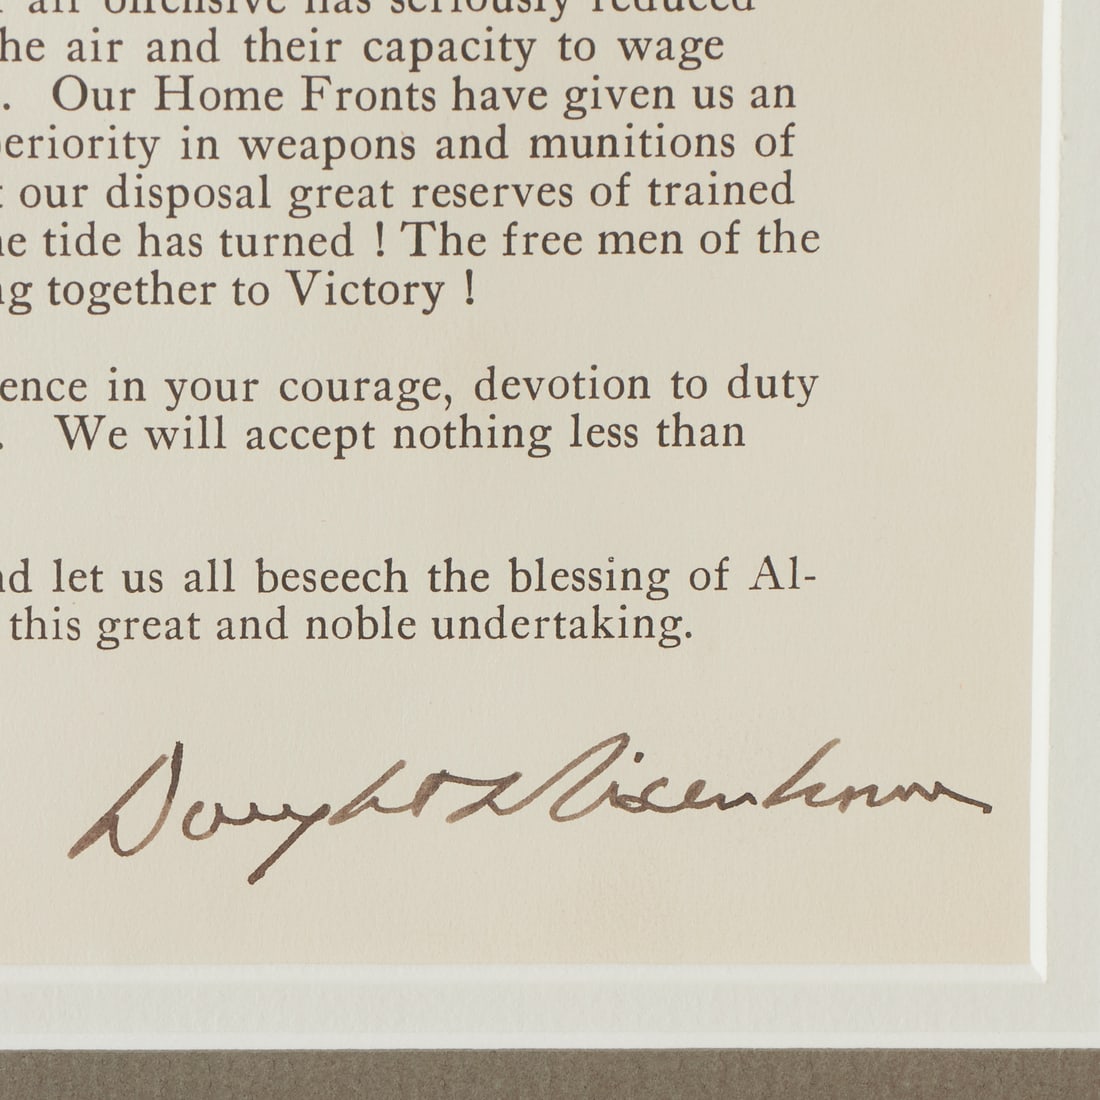 air offensive has seriously reduced
he air and their capacity to wage
. Our Home Fronts have given us an
eriority in weapons and munitions of
t our disposal great reserves of trained
e tide has turned ! The free men of the
ng together to Victory !
ence in your courage, devotion to duty
. We will accept nothing less than
nd let us all beseech the blessing of Al-
this great and noble undertaking.
Dwight D Eisenhower